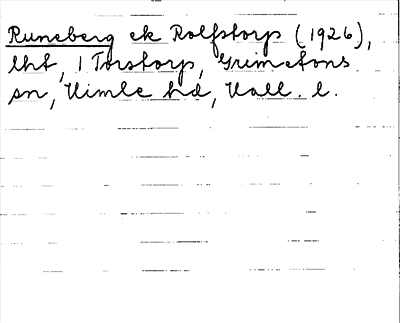 Runeberg ek Rolfstorp (1926),
lht, 1 Torstorp, Grimetons
sn, Himle hd, Hall. l.